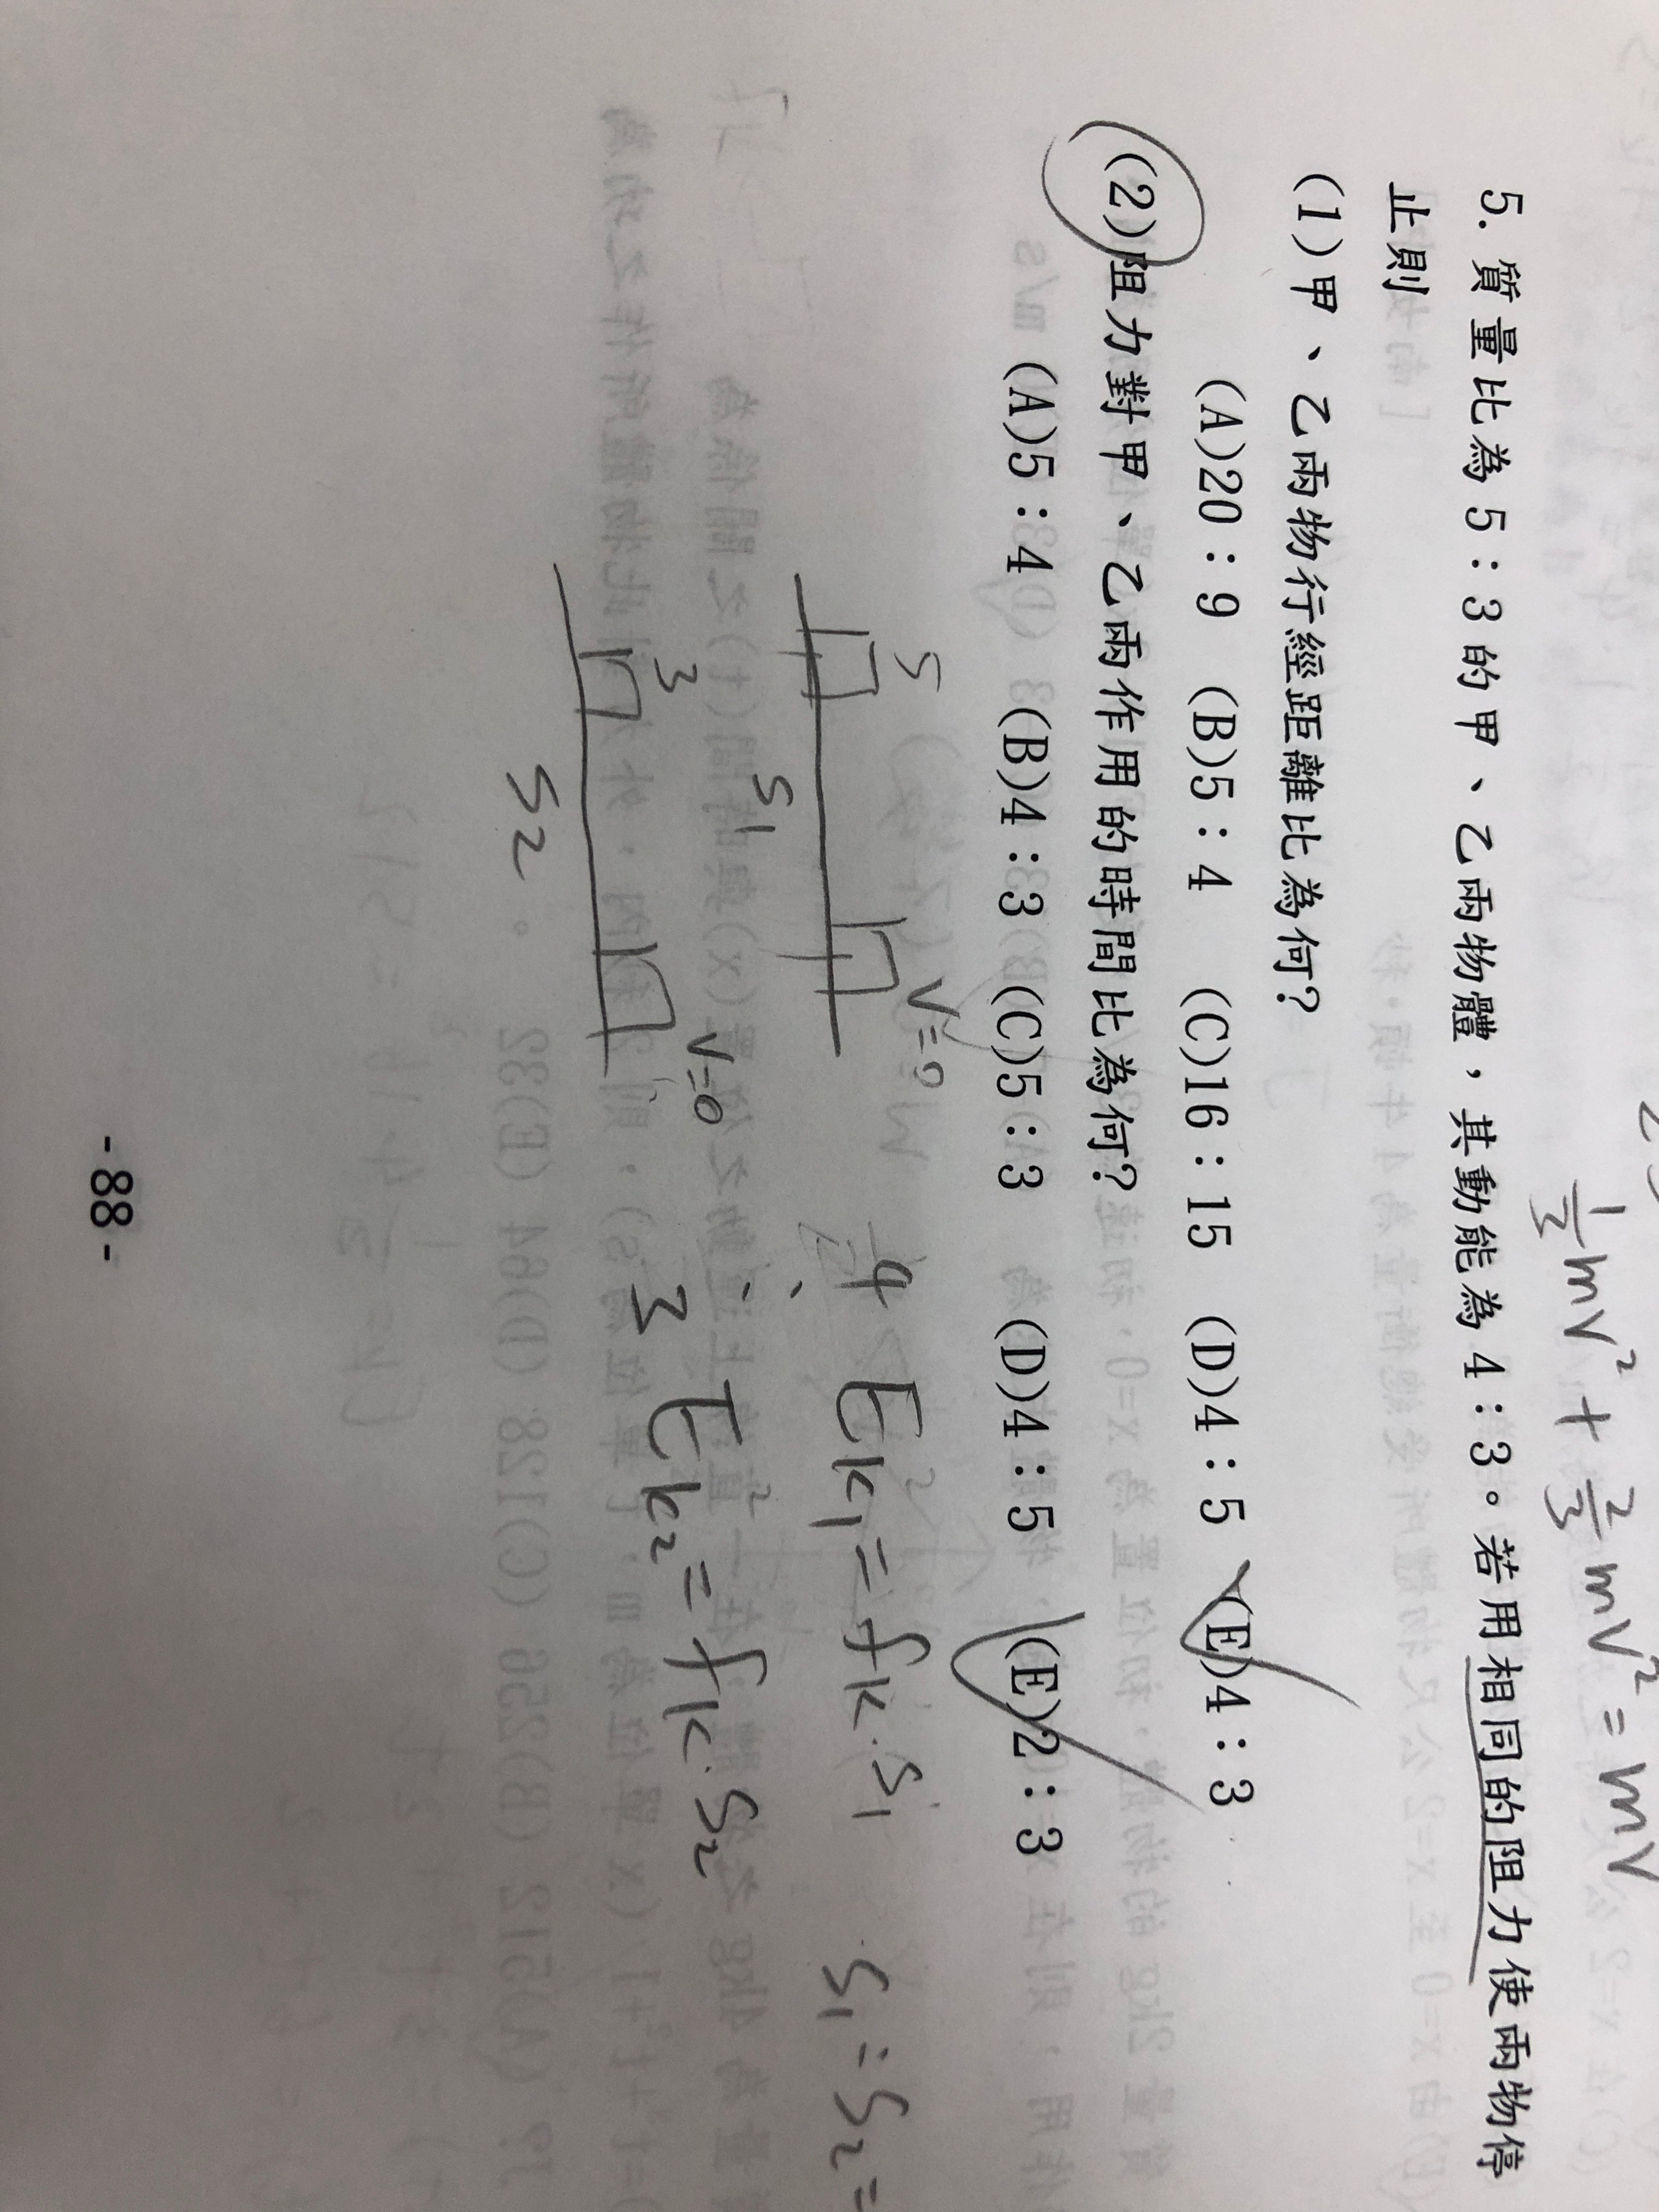 ½mv² + ⅔mv² = mv
5. 質量比為 5：3 的甲、乙兩物體，其動能為 4：3。若用相同的阻力使兩物停
止則
(1)甲、乙兩物行經距離比為何?
(A)20：9 (B)5：4 (C)16：15 (D)4：5 (E)4：3
(2)阻力對甲、乙兩作用的時間比為何?
(A)5：4 (B)4：3 (C)5：3 (D)4：5 (E)2：3
5 S1 V=0
4 Ek1 = fk · S1 S1 : S2 =
3 S2 V=0
3 Ek2 = fk · S2
- 88 -